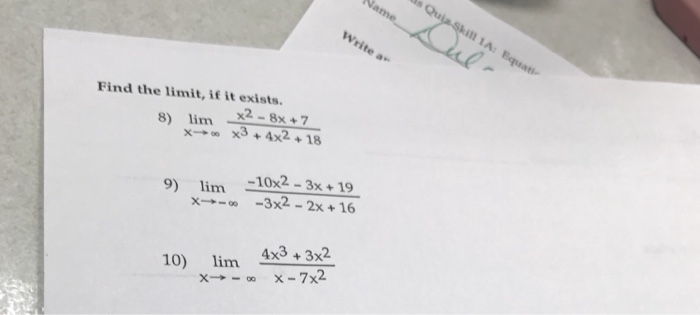 Quiz Skill 1A:
Name
Write
Find the limit, if it exists.
8) lim x→∞ x2 - 8x + 7 / x3 + 4x2 + 18
9) lim x→-∞ -10x2 - 3x + 19 / -3x2 - 2x + 16
10) lim x→ - ∞ 4x3 + 3x2 / x - 7x2